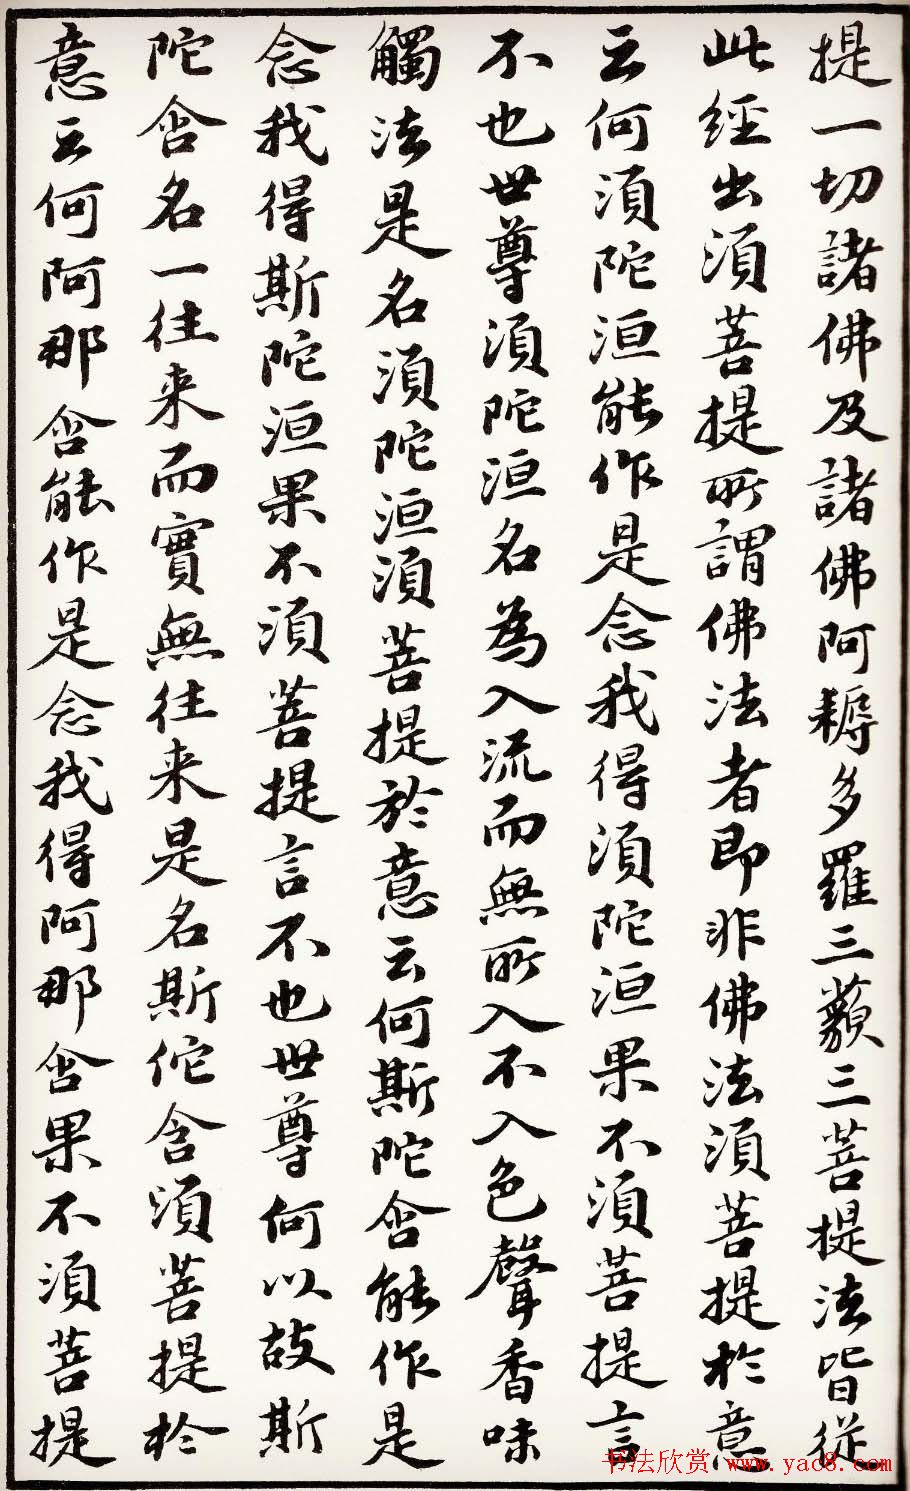 提一切諸佛及諸佛阿耨多羅三藐三菩提法皆從
此經出須菩提所謂佛法者即非佛法須菩提於意
云何須陀洹能作是念我得須陀洹果不須菩提言
不也世尊須陀洹名為入流而無所入不入色聲香味
觸法是名須陀洹須菩提於意云何斯陀含能作是
念我得斯陀洹果不須菩提言不也世尊何以故斯
陀含名一往来而實無往来是名斯佗含須菩提於
意云何阿那含能作是念我得阿那含果不須菩提
书法欣赏 www.yac8.com